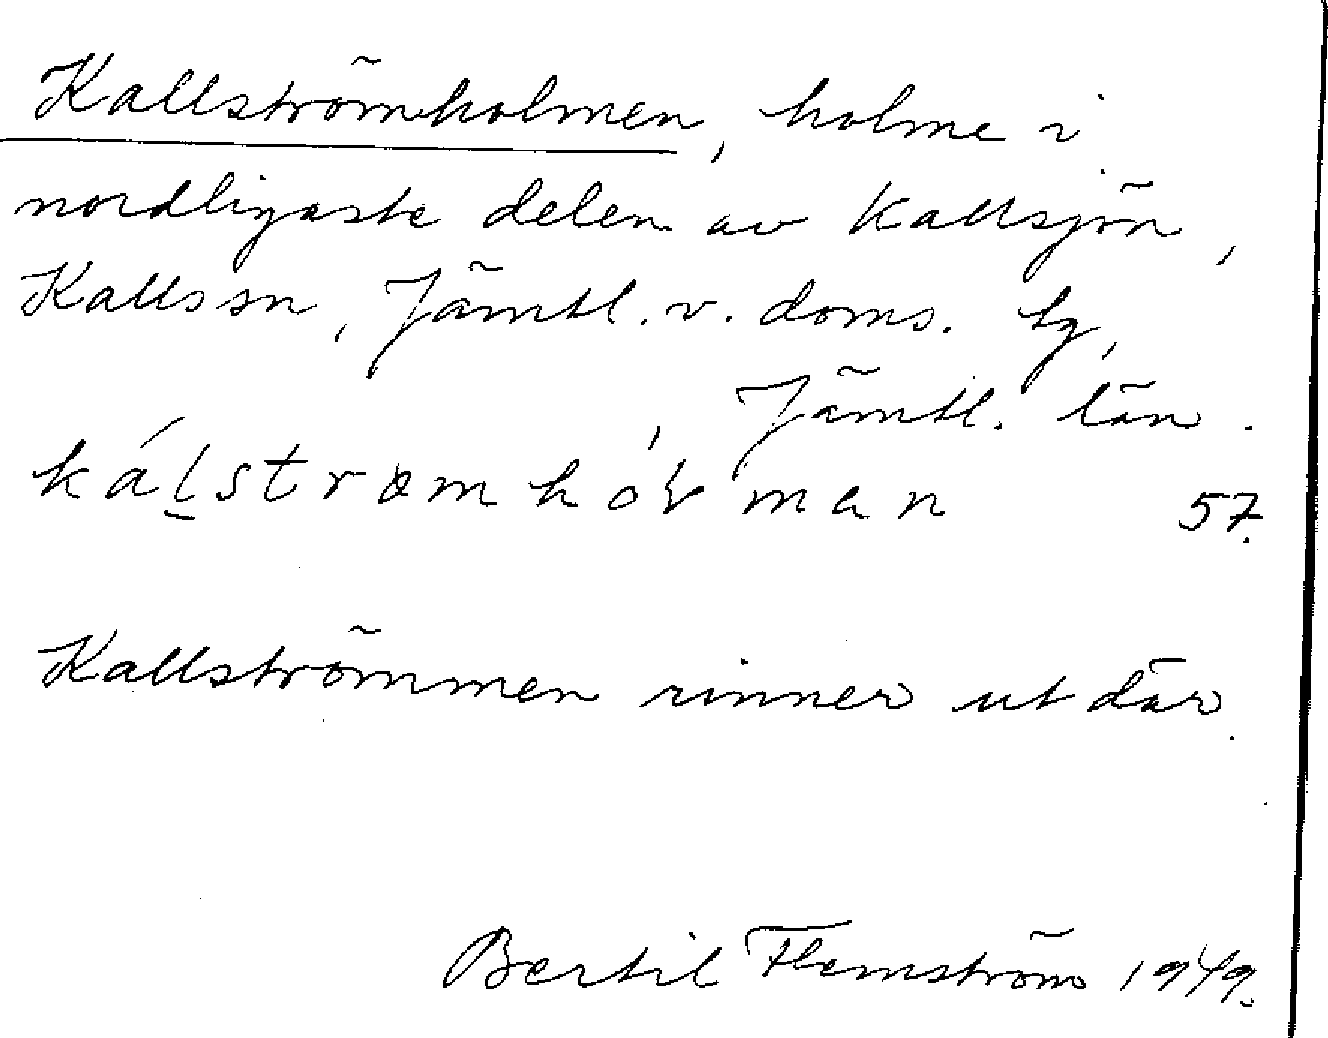 Kallströmholmen, holme i
nordligaste delen av Kallsjön,
Kalls sn, Jämtl. v. doms. tg,
Jämtl. län.
57.
Kallströmmen rinner ut där.
Bertil Flemström 1949.